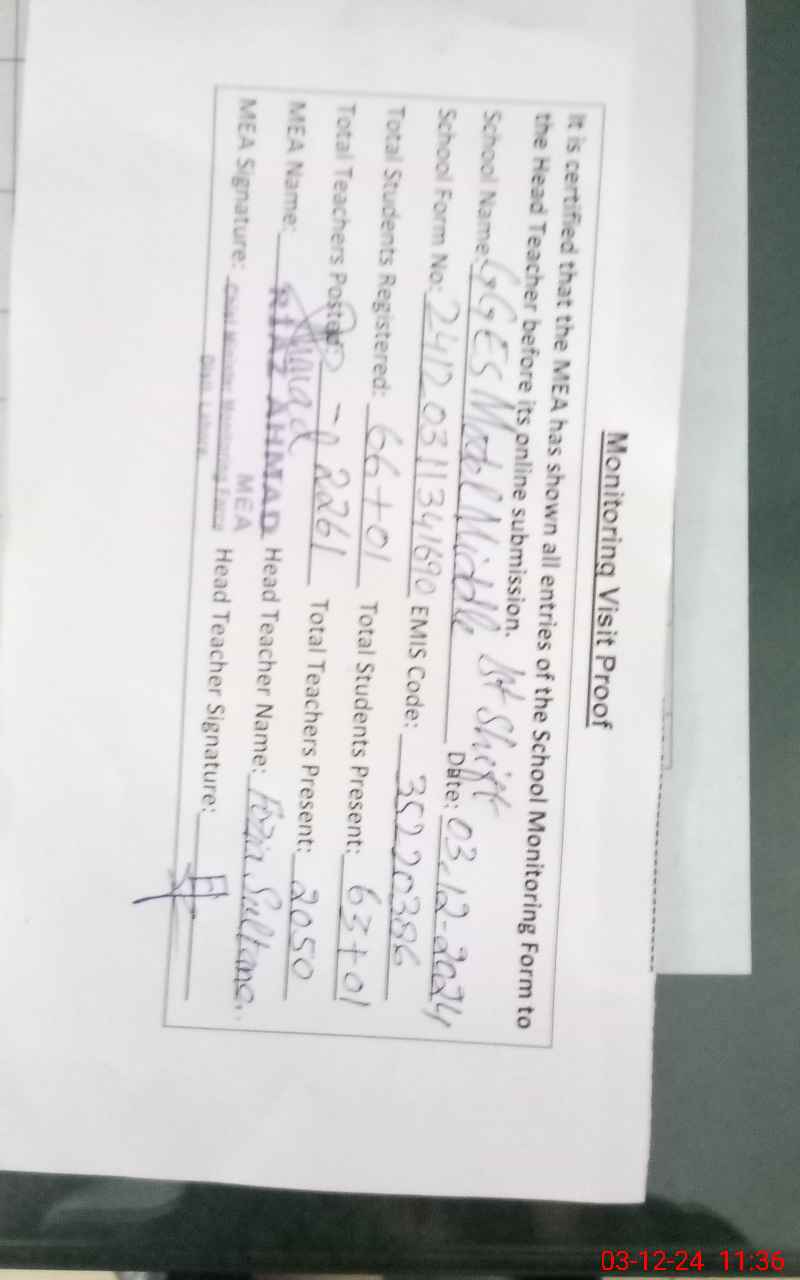 Monitoring Visit Proof
It is certified that the MEA has shown all entries of the School Monitoring Form to
the Head Teacher before its online submission.
School Name: GGES Model Middle 1st Shift Date: 03-12-2024
School Form No: 24120311341690 EMIS Code: 35220386
Total Students Registered: 66+01 Total Students Present: 63+01
Total Teachers Posted 2261 Total Teachers Present: 2050
MEA Name: RIAZ AHMAD Head Teacher Name: Sultana
MEA
MEA Signature: Head Teacher Signature:
03-12-24 11:36